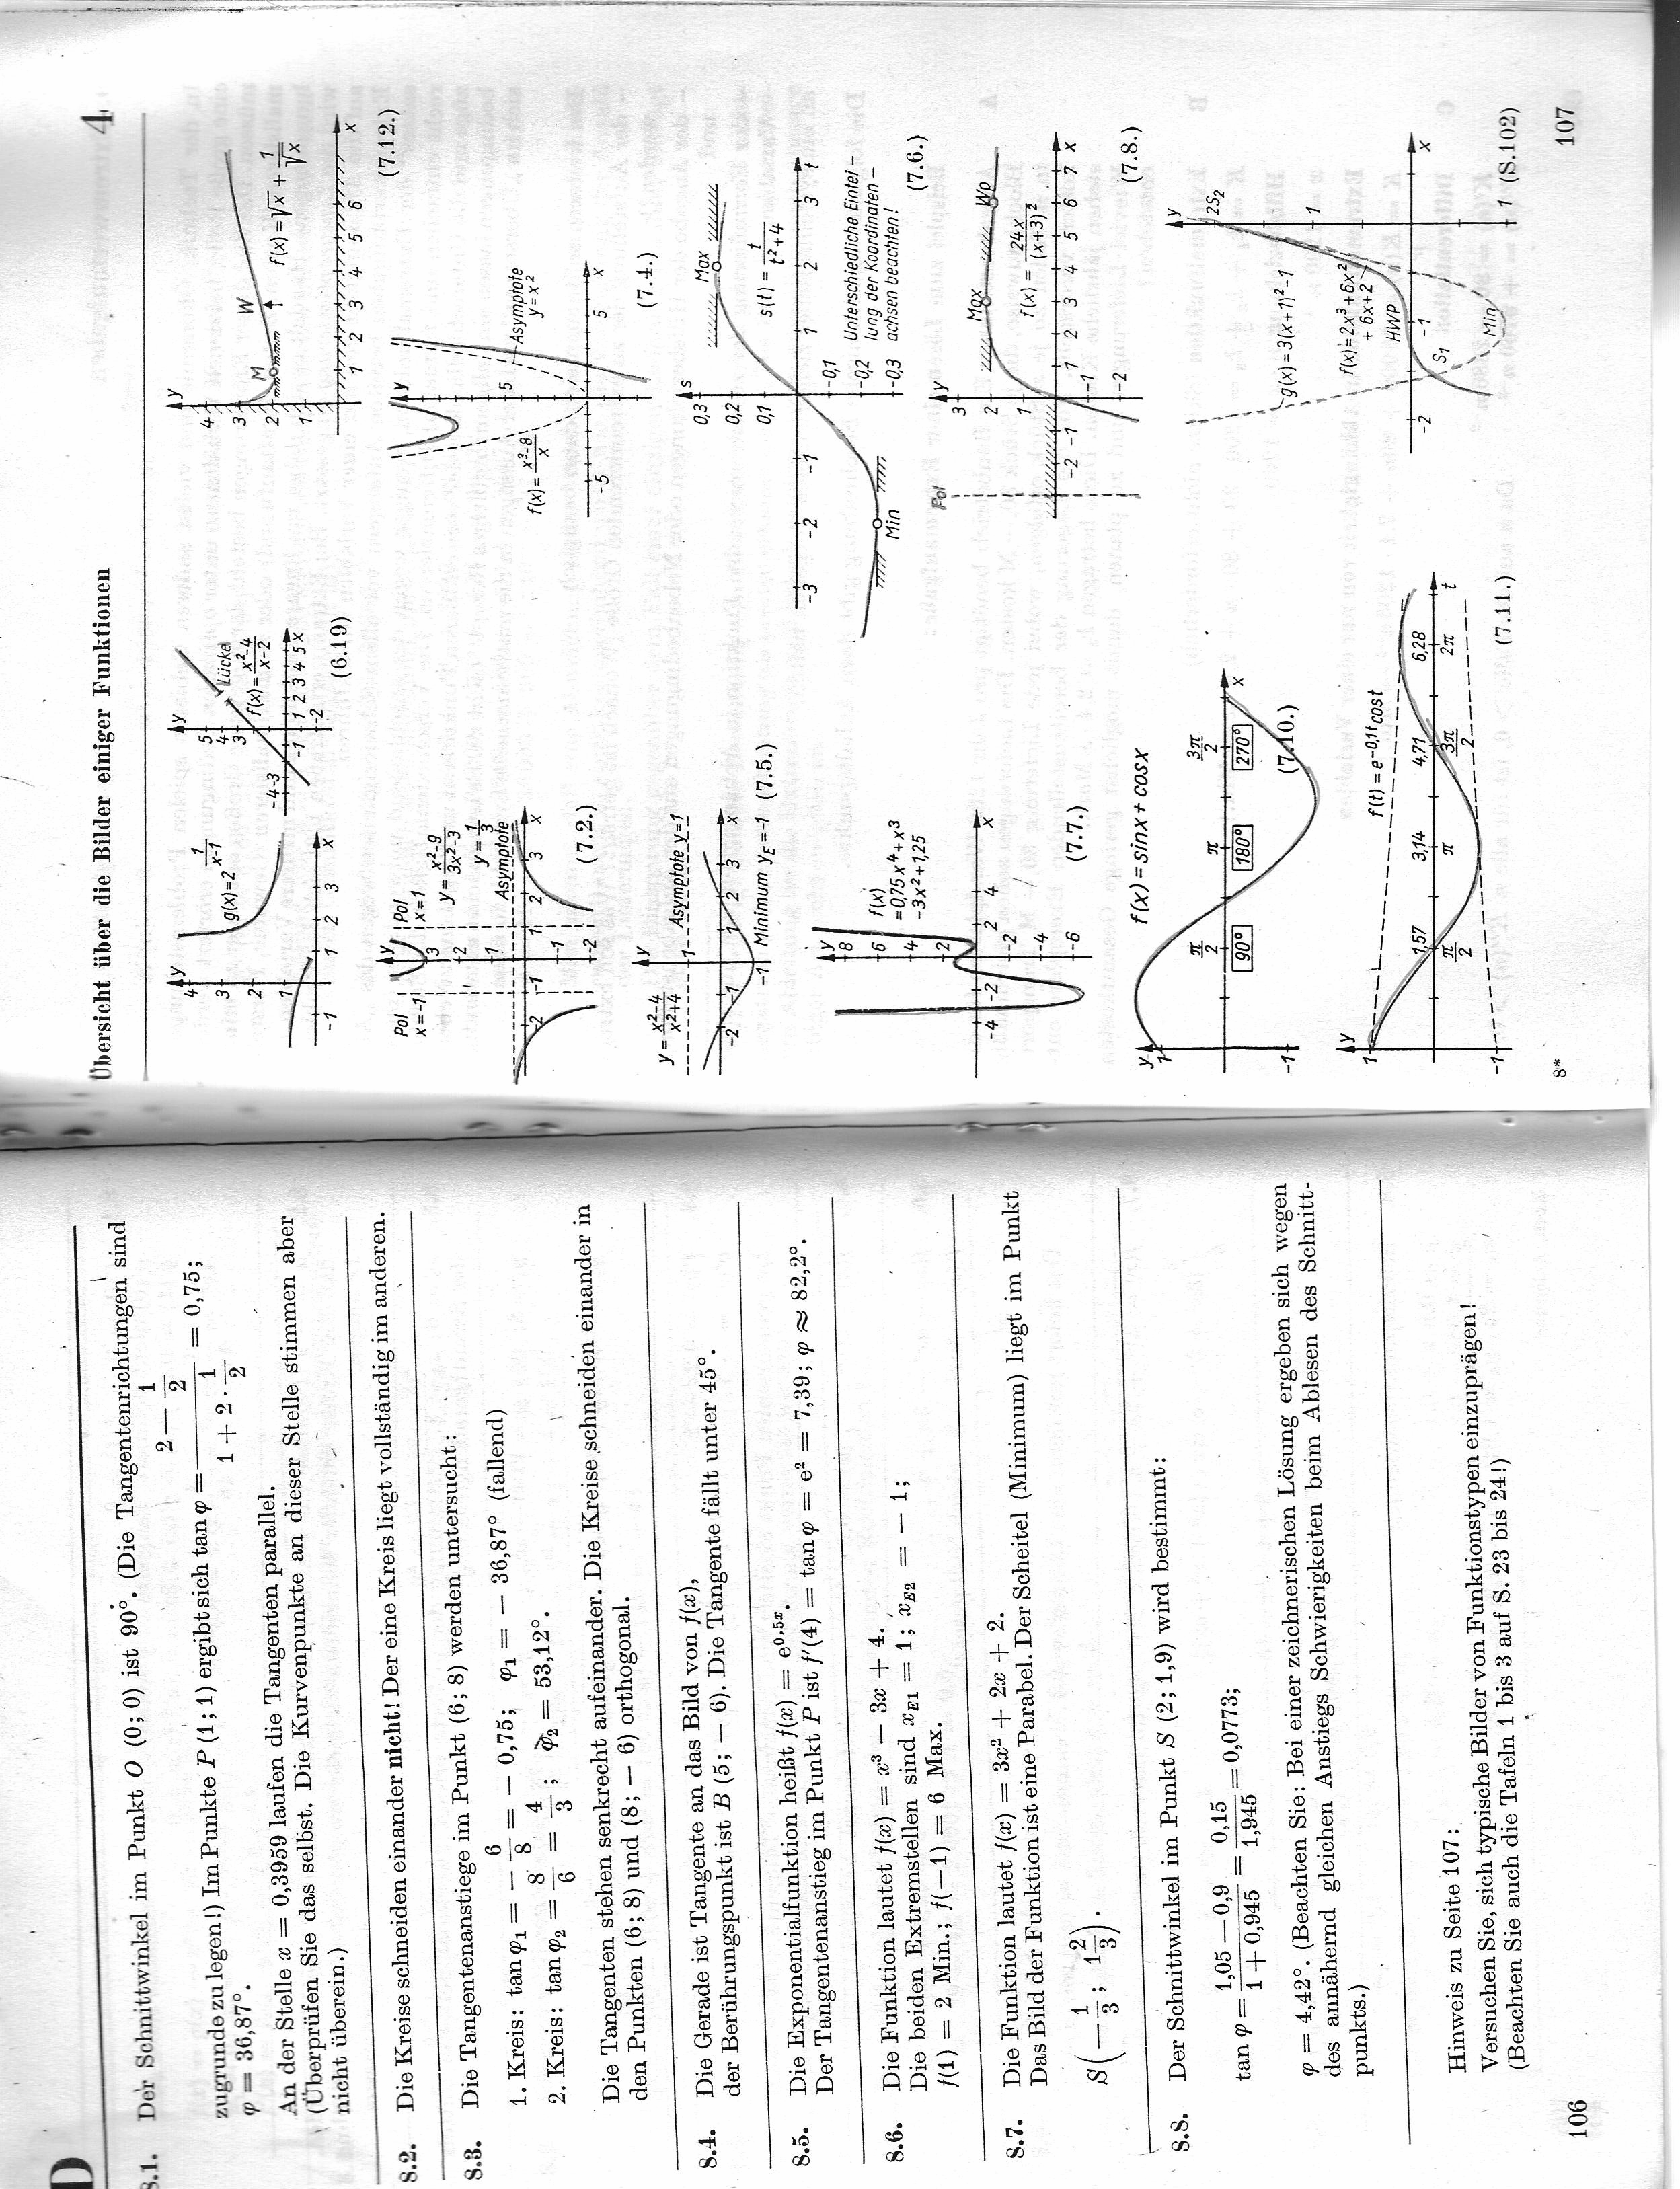 D
8.1. Der Schnittwinkel im Punkt O (0; 0) ist 90°. (Die Tangentenrichtungen sind
zugrunde zu legen!) Im Punkte P (1; 1) ergibt sich tan φ = (2 − 1/2)/(1 + 2 · 1/2) = 0,75;
φ = 36,87°.
An der Stelle x = 0,3959 laufen die Tangenten parallel.
(Überprüfen Sie das selbst. Die Kurvenpunkte an dieser Stelle stimmen aber
nicht überein.)
8.2. Die Kreise schneiden einander nicht! Der eine Kreis liegt vollständig im anderen.
8.3. Die Tangentenanstiege im Punkt (6; 8) werden untersucht:
1. Kreis: tan φ₁ = − 6/8 = − 0,75; φ₁ = − 36,87° (fallend)
2. Kreis: tan φ₂ = 8/6 = 4/3; φ₂ = 53,12°.
Die Tangenten stehen senkrecht aufeinander. Die Kreise schneiden einander in
den Punkten (6; 8) und (8; − 6) orthogonal.
8.4. Die Gerade ist Tangente an das Bild von f(x),
der Berührungspunkt ist B (5; − 6). Die Tangente fällt unter 45°.
8.5. Die Exponentialfunktion heißt f(x) = e^0,5x.
Der Tangentenanstieg im Punkt P ist f′(4) = tan φ = e² = 7,39; φ ≈ 82,2°.
8.6. Die Funktion lautet f(x) = x³ − 3x + 4.
Die beiden Extremstellen sind x_E1 = 1; x_E2 = − 1;
f(1) = 2 Min.; f(−1) = 6 Max.
8.7. Die Funktion lautet f(x) = 3x² + 2x + 2.
Das Bild der Funktion ist eine Parabel. Der Scheitel (Minimum) liegt im Punkt
S(− 1/3; 1 2/3).
8.8. Der Schnittwinkel im Punkt S (2; 1,9) wird bestimmt:
tan φ = (1,05 − 0,9)/(1 + 0,945) = 0,15/1,945 = 0,0773;
φ = 4,42°. (Beachten Sie: Bei einer zeichnerischen Lösung ergeben sich wegen
des annähernd gleichen Anstiegs Schwierigkeiten beim Ablesen des Schnitt-
punkts.)
Hinweis zu Seite 107:
Versuchen Sie, sich typische Bilder von Funktionstypen einzuprägen!
(Beachten Sie auch die Tafeln 1 bis 3 auf S. 23 bis 24!)
106
Übersicht über die Bilder einiger Funktionen 4
y
4
3
2
1
g(x)=2^(1/(x-1))
-1 1 2 3 x
y
5
4
3
Lücke
f(x)=(x²-4)/(x-2)
-4 -3 -1 1 2 3 4 5 x
-2
(6.19)
y
4
3
2
1
M
W
f(x)=√x + 1/√x
1 2 3 4 5 6 x
(7.12.)
Pol
x=-1
y
3
2
1
Pol
x=1
y=(x²-9)/(3x²-3)
y=1/3
Asymptote
-2 -1 1 2 3 x
-1
-2
(7.2.)
y
5
f(x)=(x³-8)/x
Asymptote
y=x²
-5 5 x
(7.4.)
y=(x²-4)/(x²+4)
y
1
Asymptote y=1
-2 -1 1 2 3 x
-1
Minimum y_E=-1 (7.5.)
s
0,3
0,2
0,1
Max
s(t)=t/(t²+4)
-3 -2 -1 1 2 3 t
-0,1
-0,2
-0,3
Min
Unterschiedliche Eintei-
lung der Koordinaten-
achsen beachten!
(7.6.)
y
8
6
4
2
f(x)
=0,75x⁴+x³
-3x²+1,25
-4 -2 2 4 x
-2
-4
-6
(7.7.)
Pol
y
3
2
1
Max
Wp
f(x)=24x/(x+3)²
-2 -1 1 2 3 4 5 6 7 x
-1
-2
(7.8.)
y
1
f(x)=sinx+cosx
π/2 π 3π/2 x
90° 180° 270°
-1
(7.10.)
y
2S₂
1
g(x)=3(x+1)²-1
f(x)=2x³+6x²
+6x+2
HWP
-2 -1 x
S₁
Min
1 (S.102)
y
1
f(t)=e^-0,1t cost
1,57 3,14 4,71 6,28
π/2 π 3π/2 2π t
-1
(7.11.)
8*
107